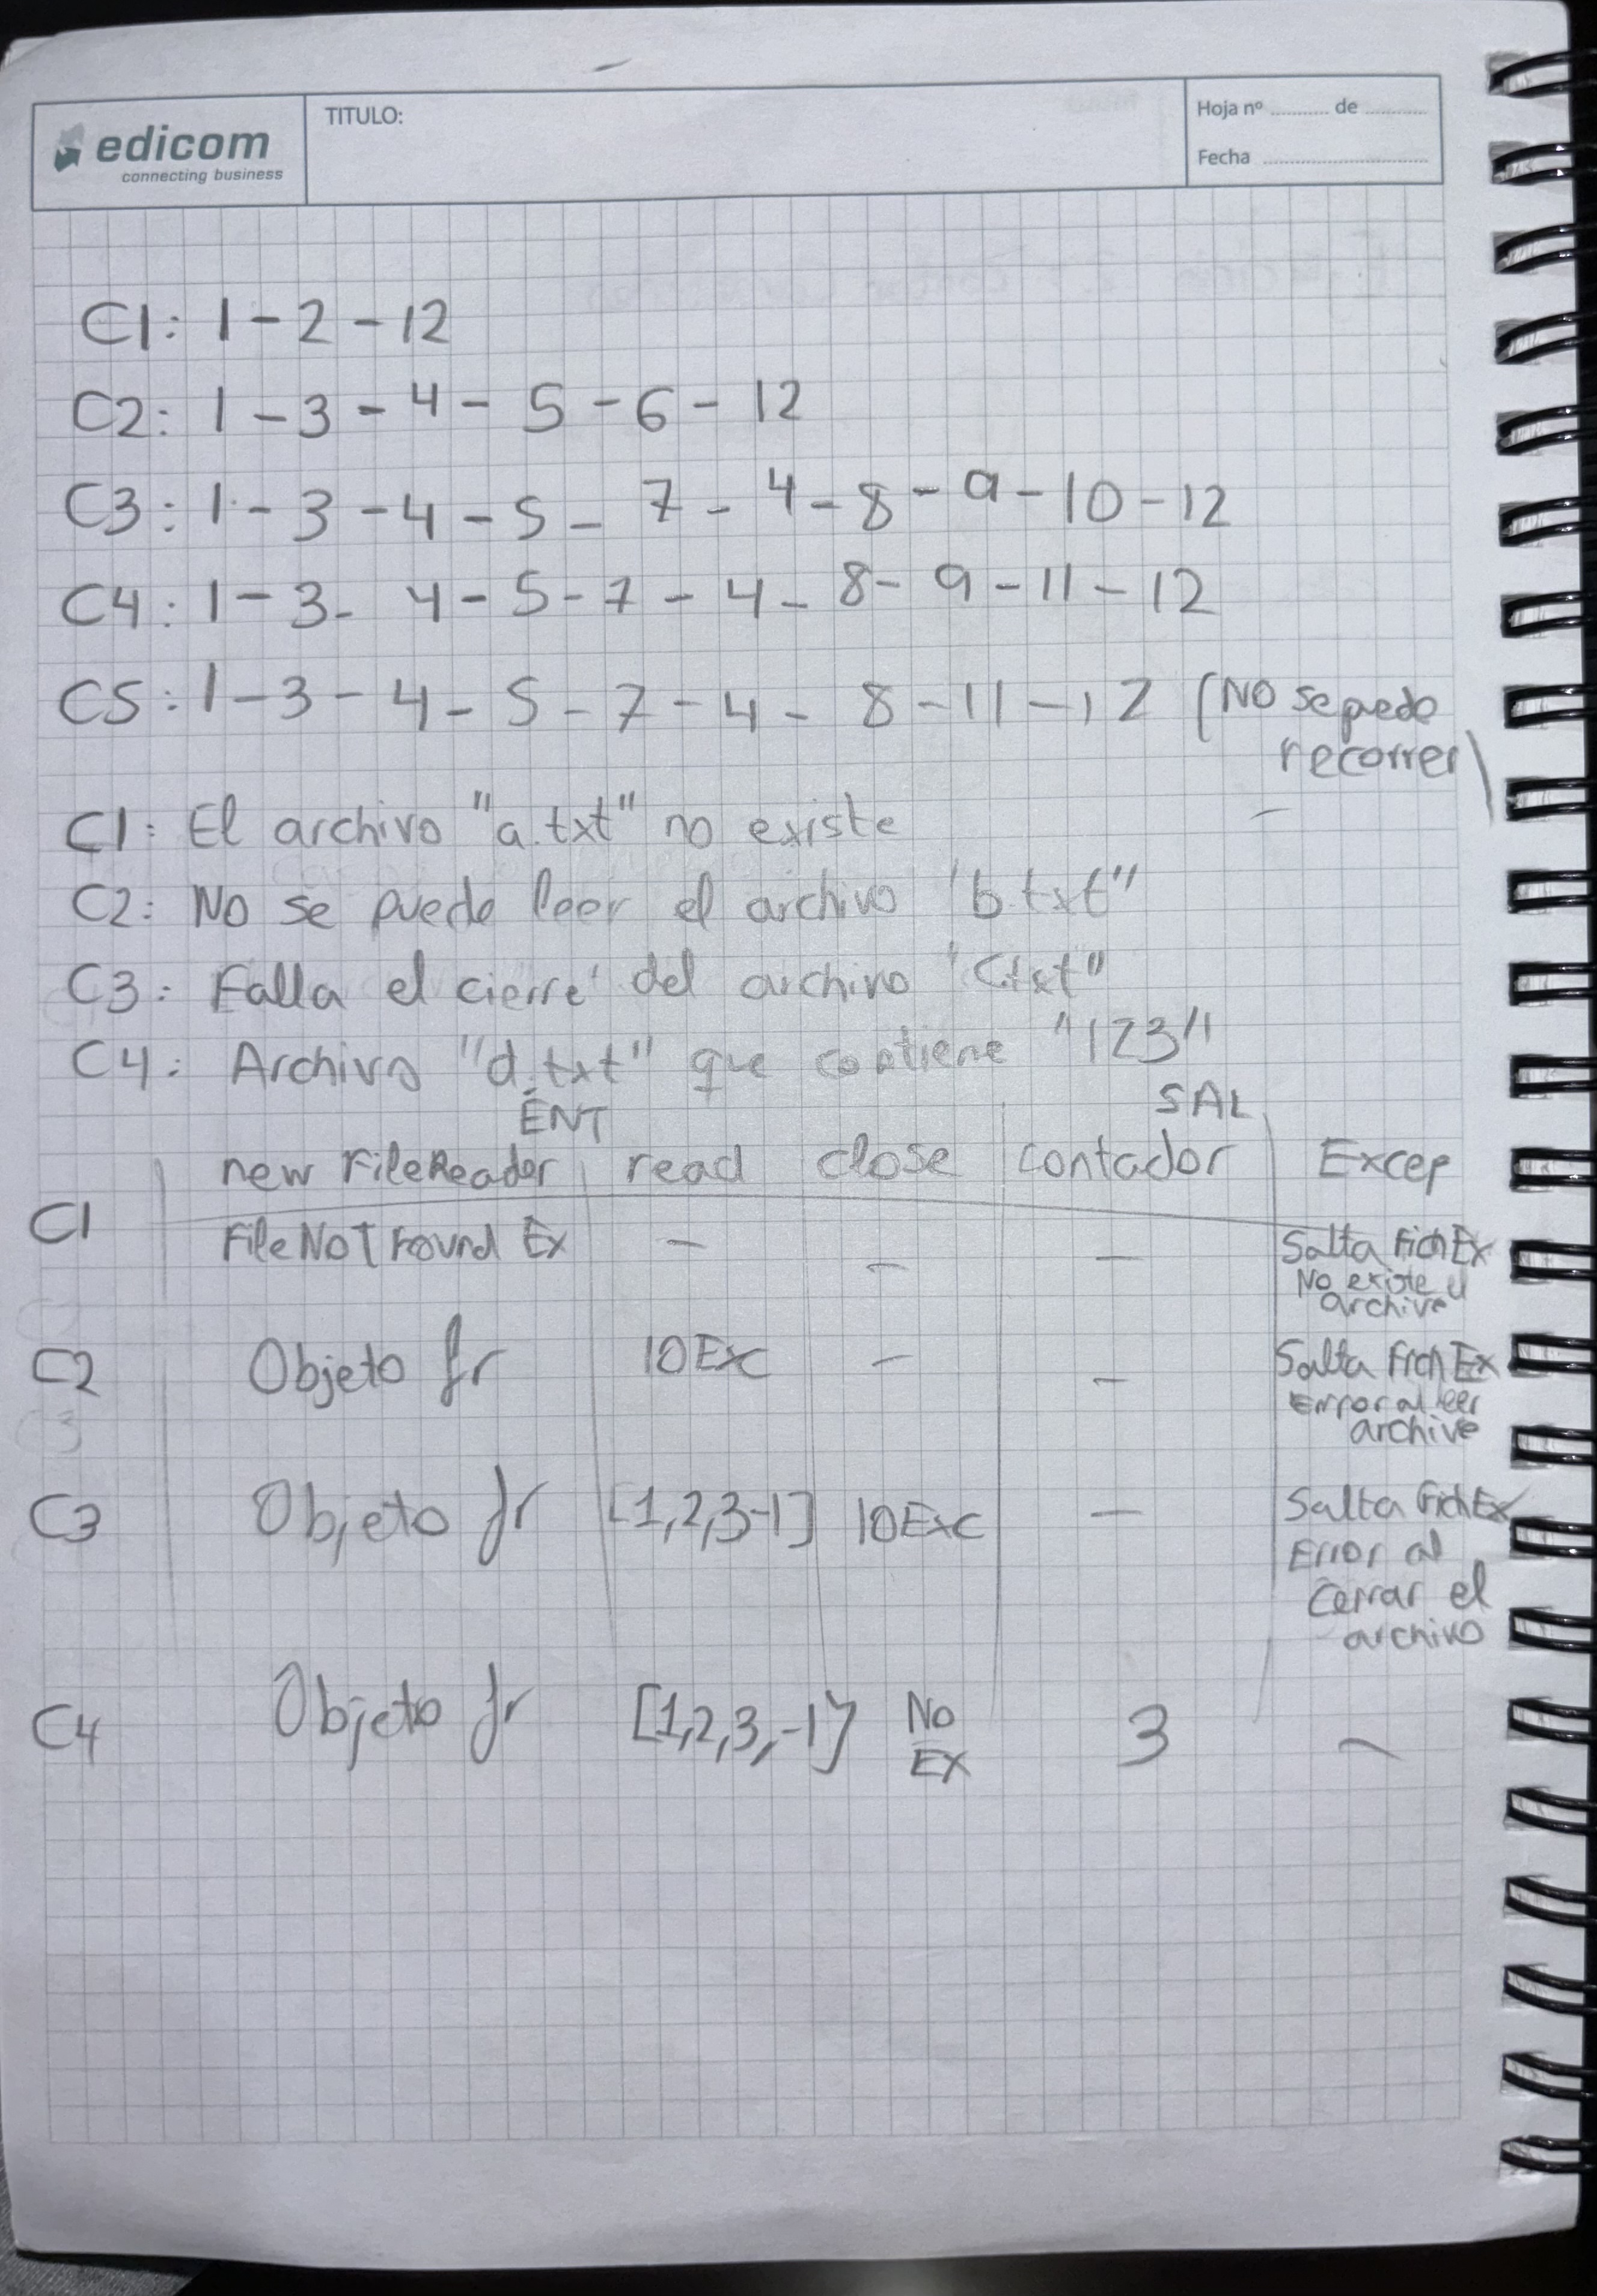 edicom
connecting business
TITULO:
Hoja nº ........... de ............
Fecha ................................
C1: 1 - 2 - 12
C2: 1 - 3 - 4 - 5 - 6 - 12
C3: 1 - 3 - 4 - 5 - 7 - 4 - 8 - 9 - 10 - 12
C4: 1 - 3 - 4 - 5 - 7 - 4 - 8 - 9 - 11 - 12
C5: 1 - 3 - 4 - 5 - 7 - 4 - 8 - 11 - 12 (NO se puede
recorrer)
C1: El archivo "a.txt" no existe
C2: No se puede leer el archivo "b.txt"
C3: Falla el cierre del archivo "c.txt"
C4: Archivo "d.txt" que contiene "123"
ENT SAL
new FileReader read close contador Excep
C1 FileNotFound Ex - - - Salta FichEx
No existe el
archivo
C2 Objeto fr IOEx - - Salta FichEx
Error al leer
archivo
C3 Objeto fr [1,2,3-1] IOExc - Salta FichEx
Error al
cerrar el
archivo
C4 Objeto fr [1,2,3,-1] No
Ex 3 -